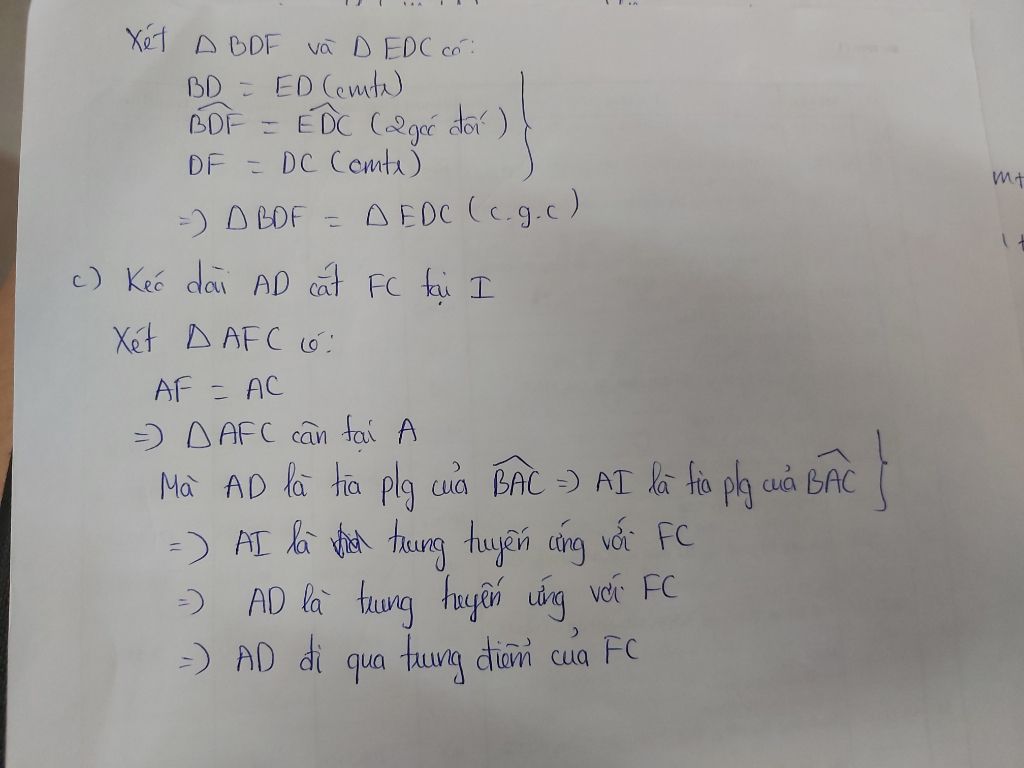 Xét Δ BDF và Δ EDC có:
BD = ED (cmtr)
BDF = EDC (2 góc đối)
DF = DC (cmtr)
=) Δ BDF = Δ EDC (c.g.c)
c) Kéo dài AD cắt FC tại I
Xét Δ AFC có:
AF = AC
=) Δ AFC cân tại A
Mà AD là tia plg của BAC =) AI là tia plg của BAC
=) AI là trung tuyến ứng với FC
=) AD là trung tuyến ứng với FC
=) AD đi qua trung điểm của FC